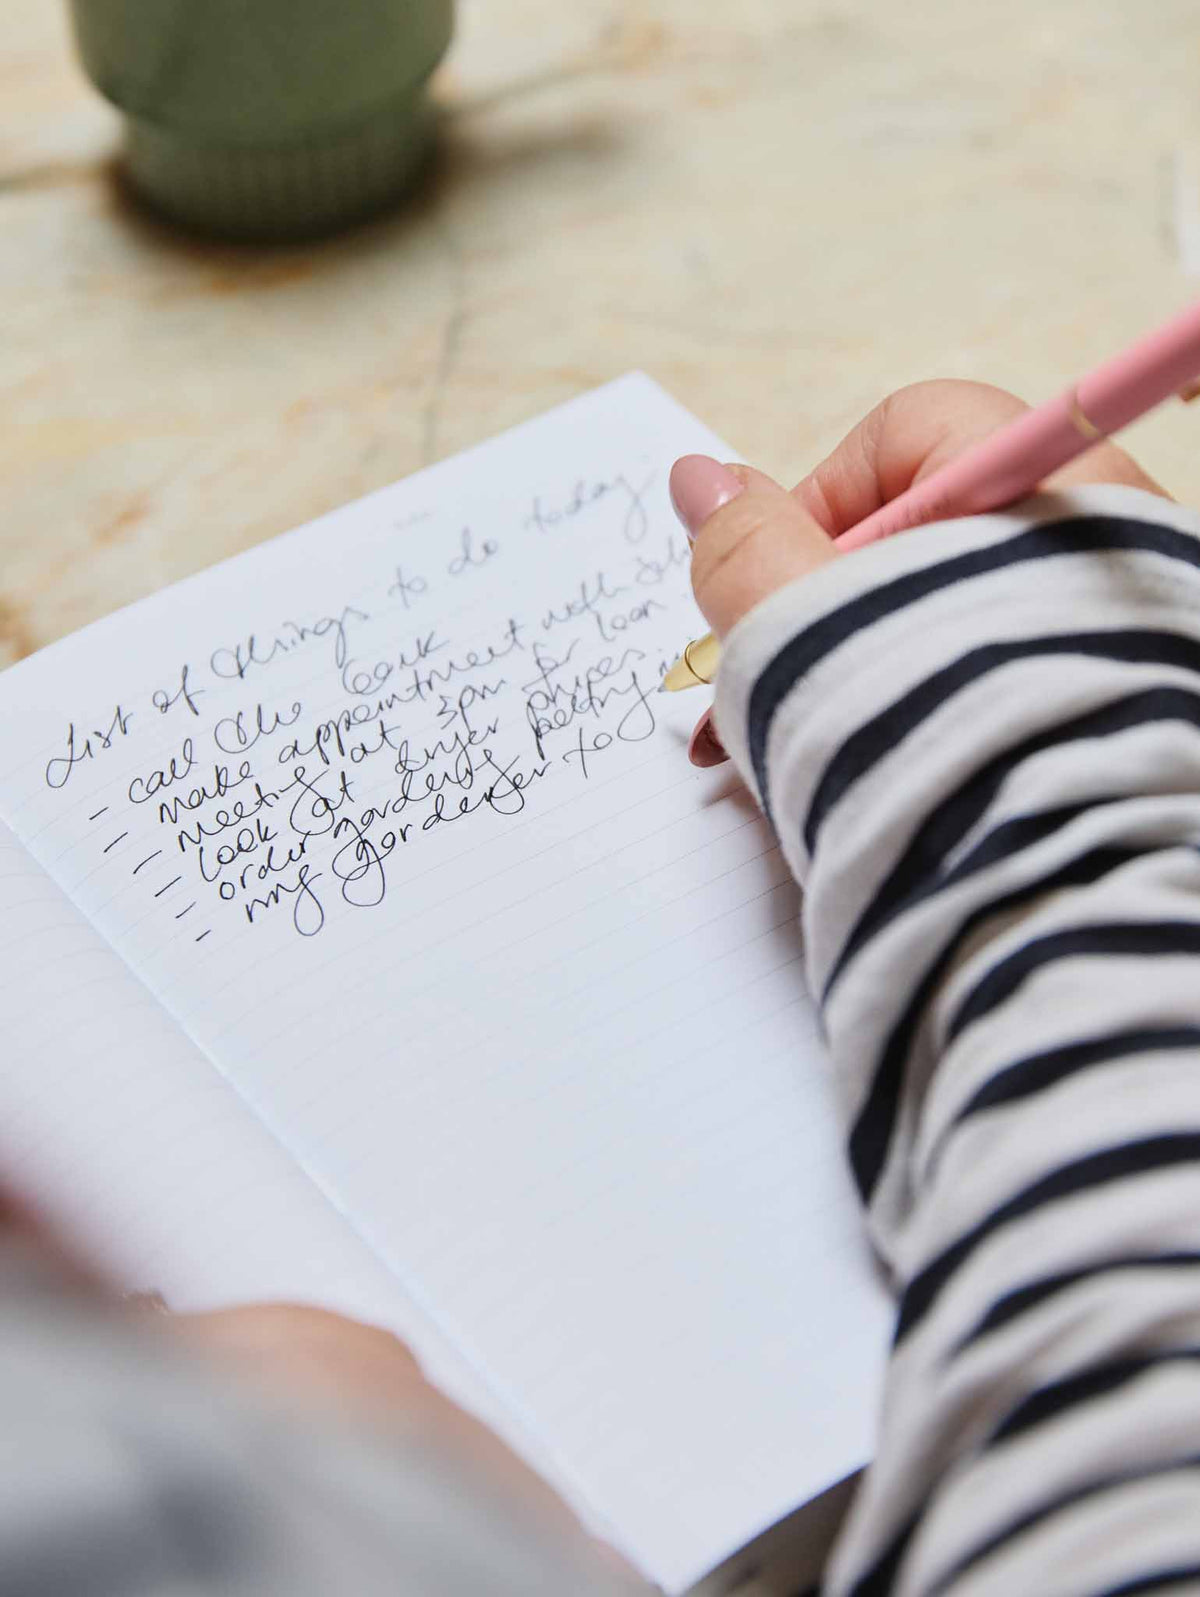 List of things to do today
- call the bank
- make appointment with
- meeting at 3pm for loan
- look at dryer prices
- order gardening
- my gardener to